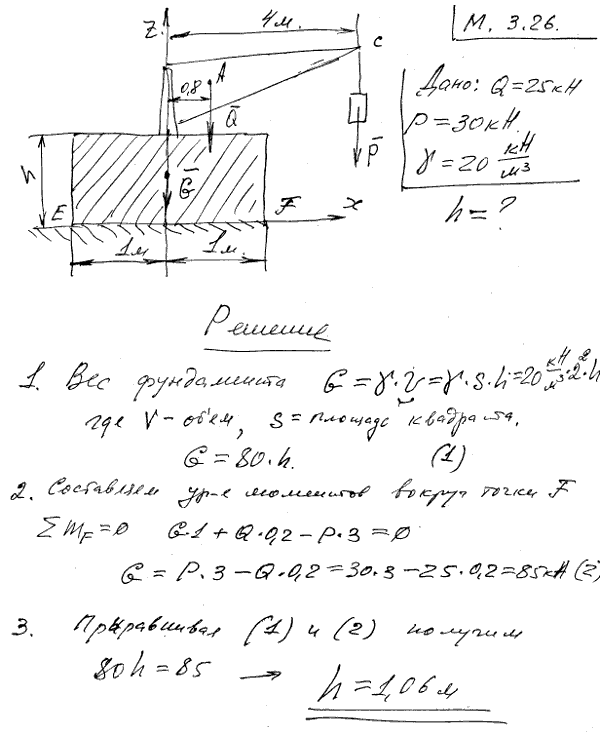 М. 3.26.
Z
4 м.
C
Дано: Q = 25 кН
0,8
A
P = 30 кН
Q̄
P̄
γ = 20 кН/м³
h
Ḡ
h = ?
E
F
x
1 м
1 м.
Решение
1. Вес фундамента G = γ·V = γ·S·h = 20 кН/м³·2²·h
где V – объем, S = площадь квадрата.
G = 80·h. (1)
2. Составляем ур-е моментов вокруг точки F
Σm_F = 0 G·1 + Q·0,2 – P·3 = 0
G = P·3 – Q·0,2 = 30·3 – 25·0,2 = 85 кН (2)
3. Приравнивая (1) и (2) получим
80h = 85 → h = 1,06 м